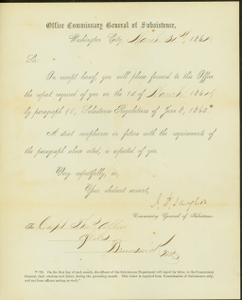 Office Commissary General of Subsistence,
Washington City, March 31st, 1864
Sir:
On receipt hereof, you will please forward to this Office
the report required of you on the 1st of March 1864
by paragraph 10, Subsistence Regulations of June 8, 1863.*
A strict compliance in future with the requirements of
the paragraph above cited, is expected of you.
Very respectfully, &c,
Your obedient servant,
J. P. Taylor
Commissary General of Subsistence
The Capt.
On the first day of each month, the officers of the Subsistence Department will report by letter, to the Commissary
General, their stations and duties during the preceding month. This includes officers on staff, commissary duty, and